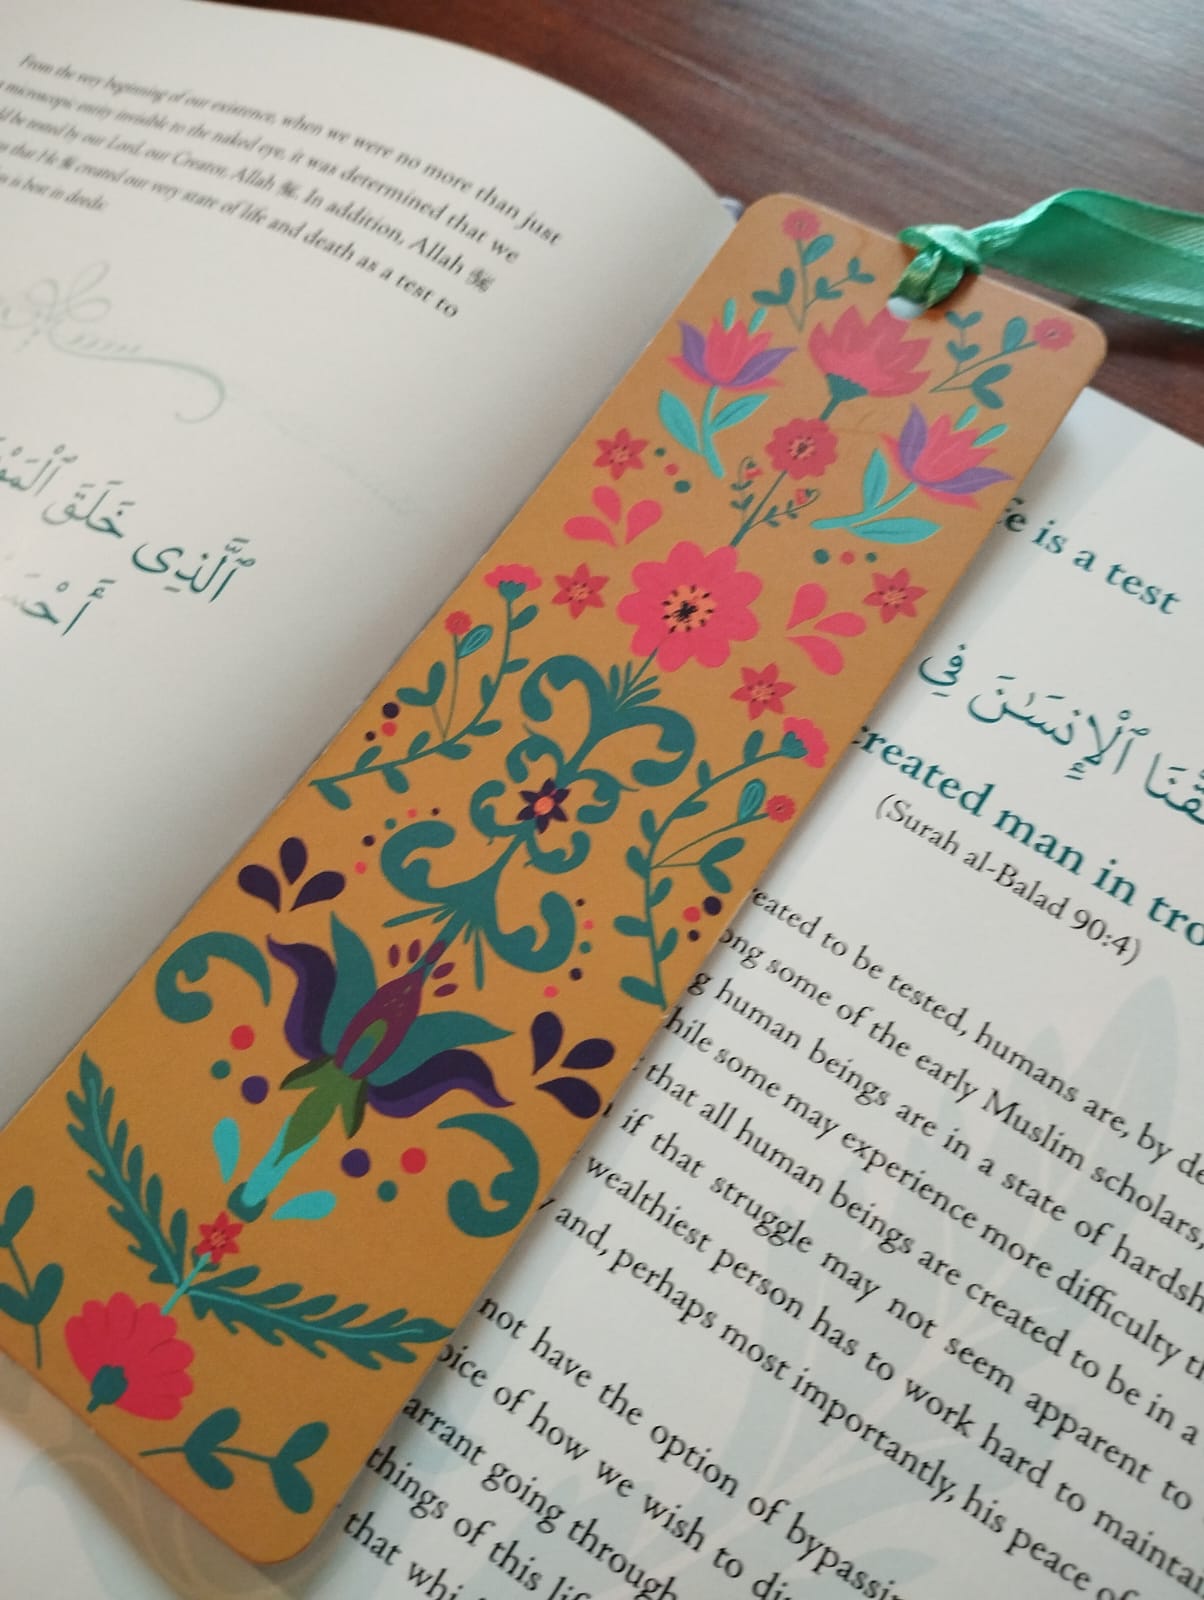 From the very beginning of our existence, when we were no more than just
microscopic entity invisible to the naked eye, it was determined that we
be tested by our Lord, our Creator, Allah ﷻ. In addition, Allah ﷻ
that He ﷻ created our very state of life and death as a test to
is best in deeds:
ٱلَّذِى خَلَقَ
is a test
ٱلْإِنسَـٰنَ فِى
created man in
(Surah al-Balad 90:4)
to be tested, humans are, by
some of the early Muslim scholars,
human beings are in a state of
some may experience more difficulty
that all human beings are created to be in a
if that struggle may not seem apparent to
wealthiest person has to work hard to
and, perhaps most importantly, his peace of
not have the option of
of how we wish to
going through
things of this
that